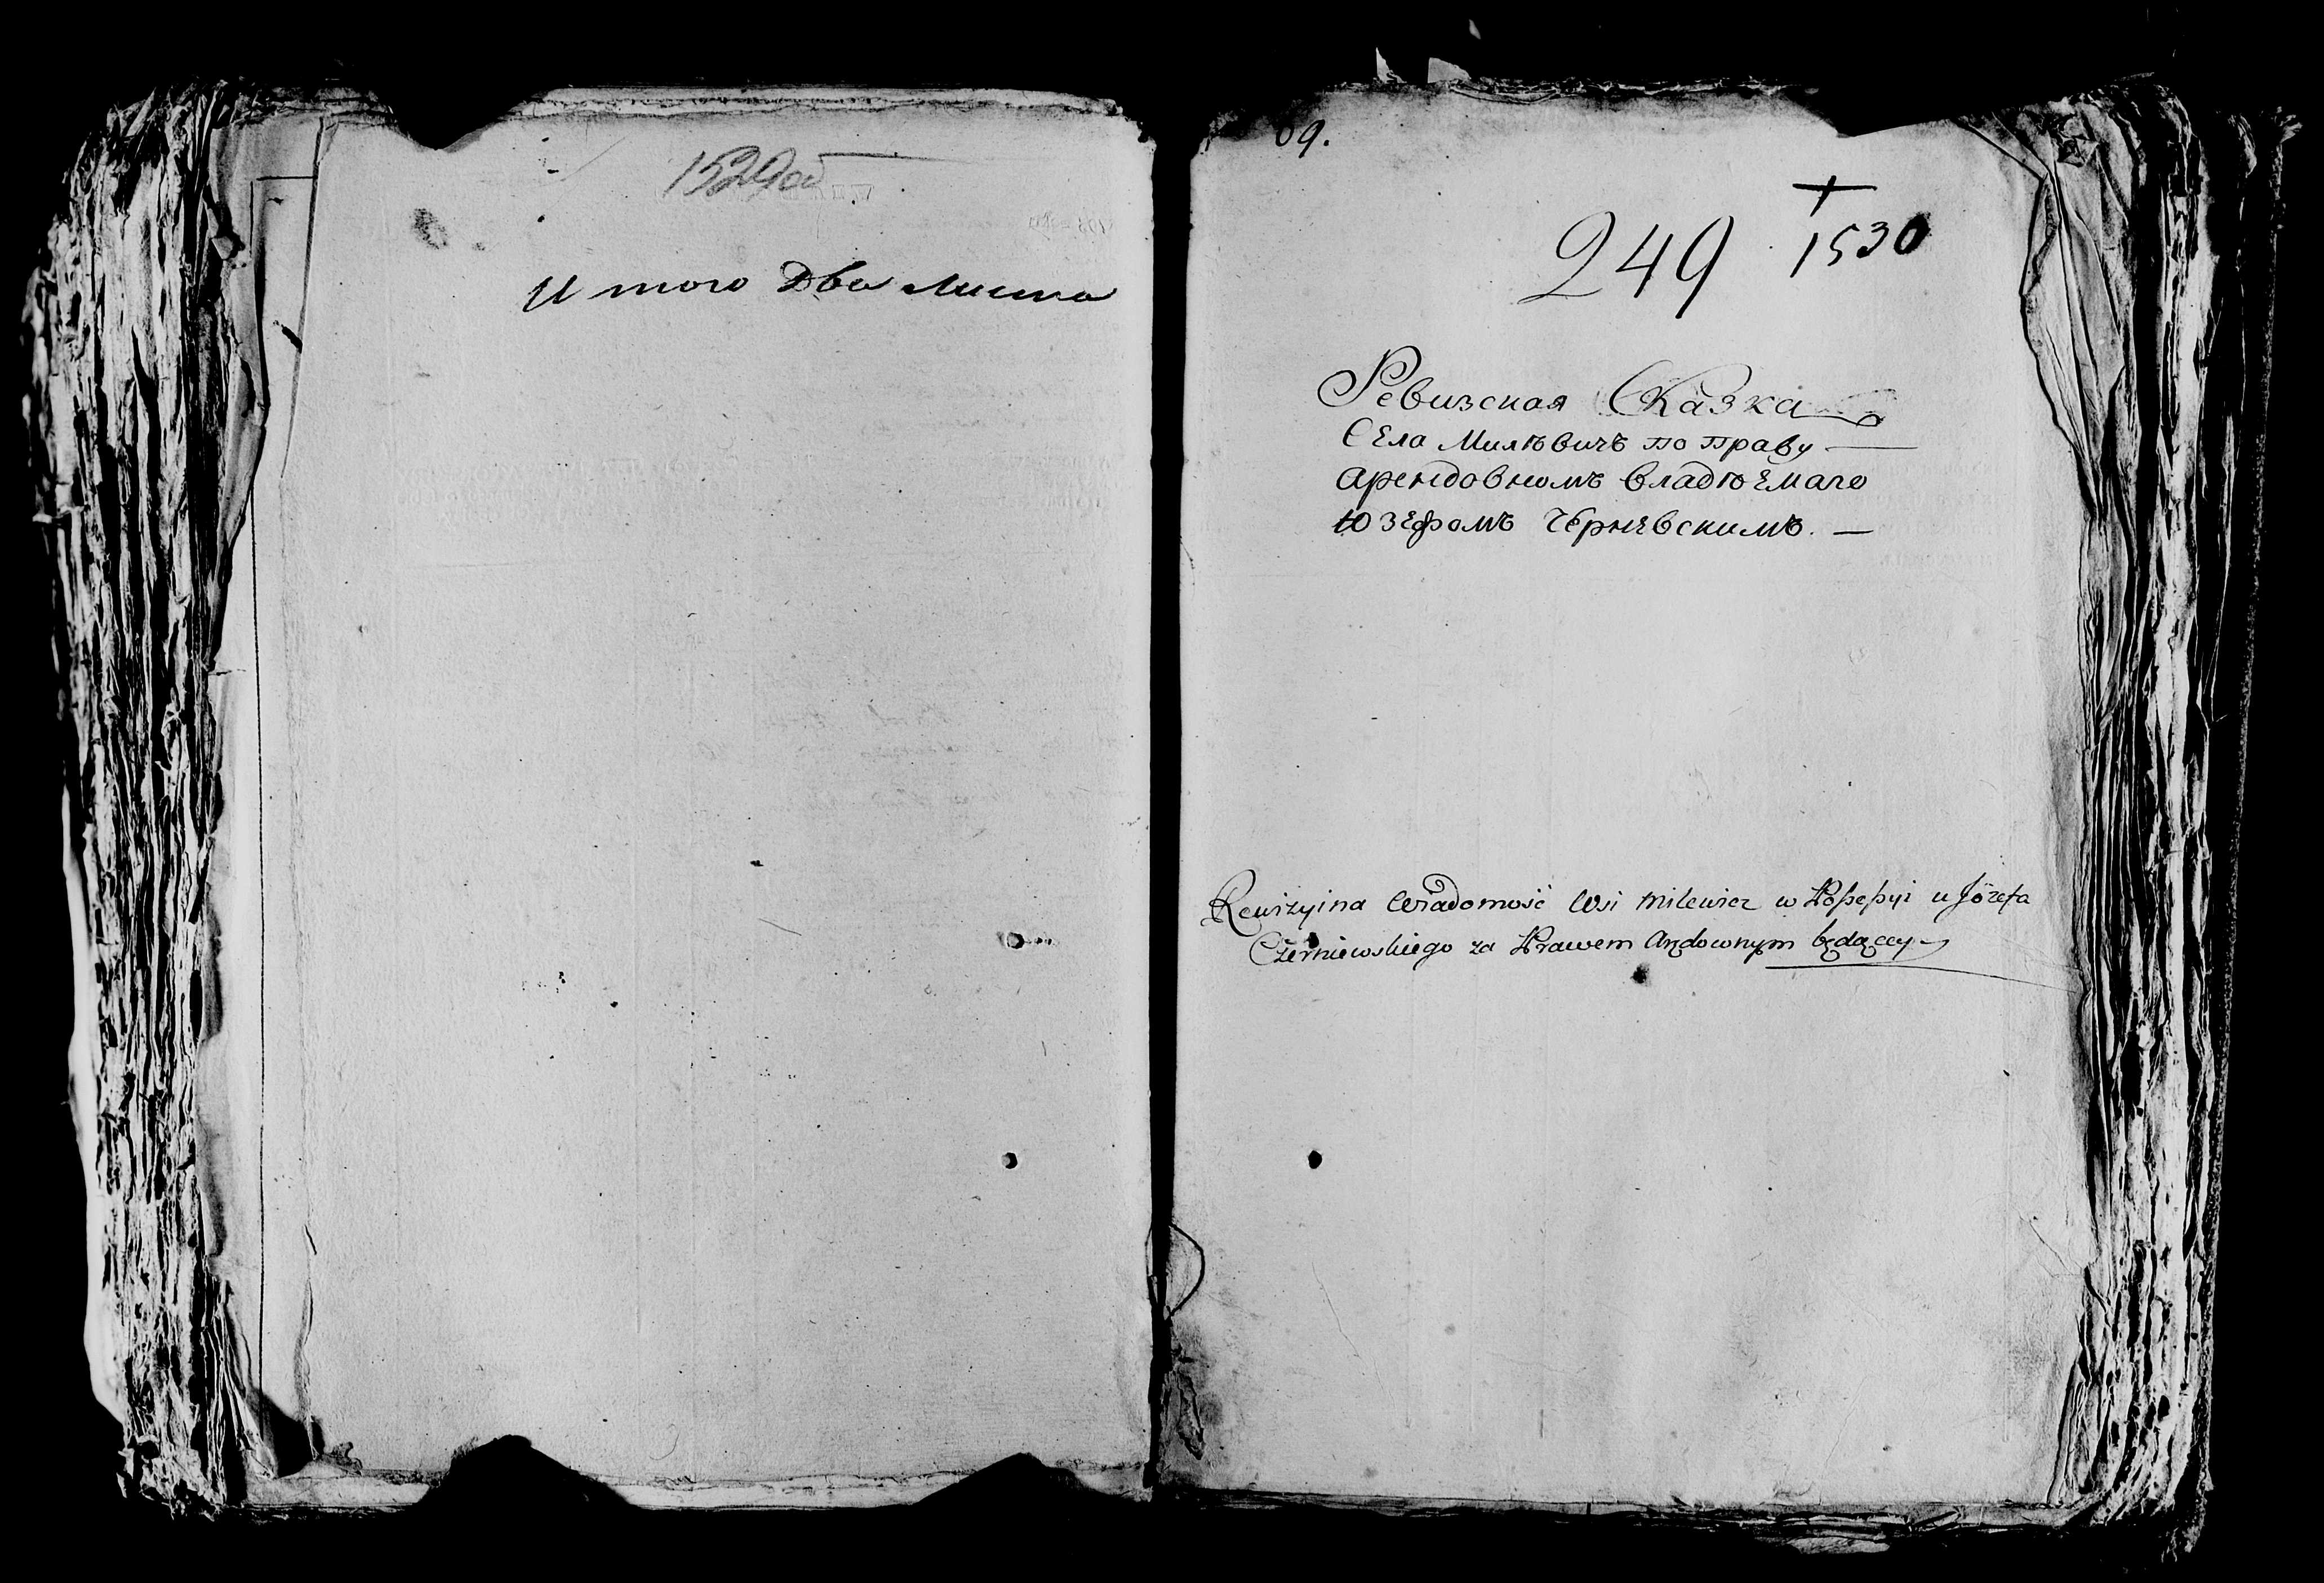 1529об
И того два листа
09.
249 1530
Ревизская Сказка
Села Милѣвичъ по праву
арендовномъ владѣемаго
Юзефомъ Чернѣвскимъ. —
Rewizyina Wiadomość Wsi Milewicz w Possessyi u Józefa
Czerniewskiego za Prawem Arędownym będącey